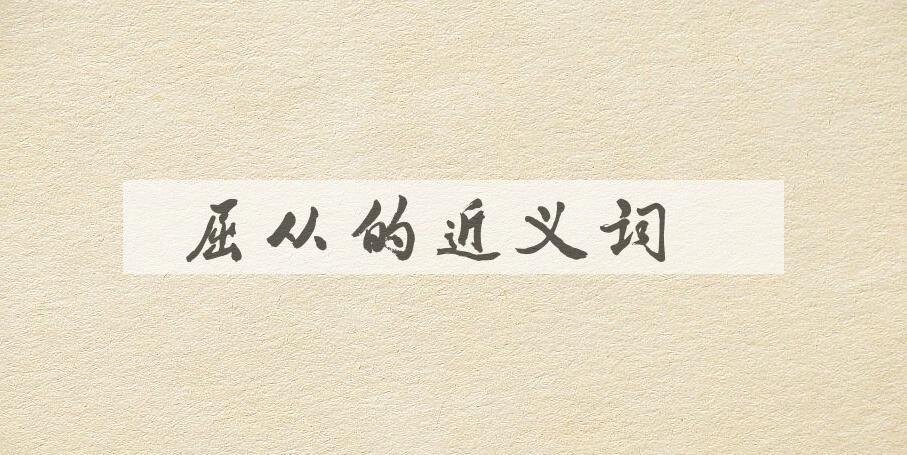 屈从的近义词